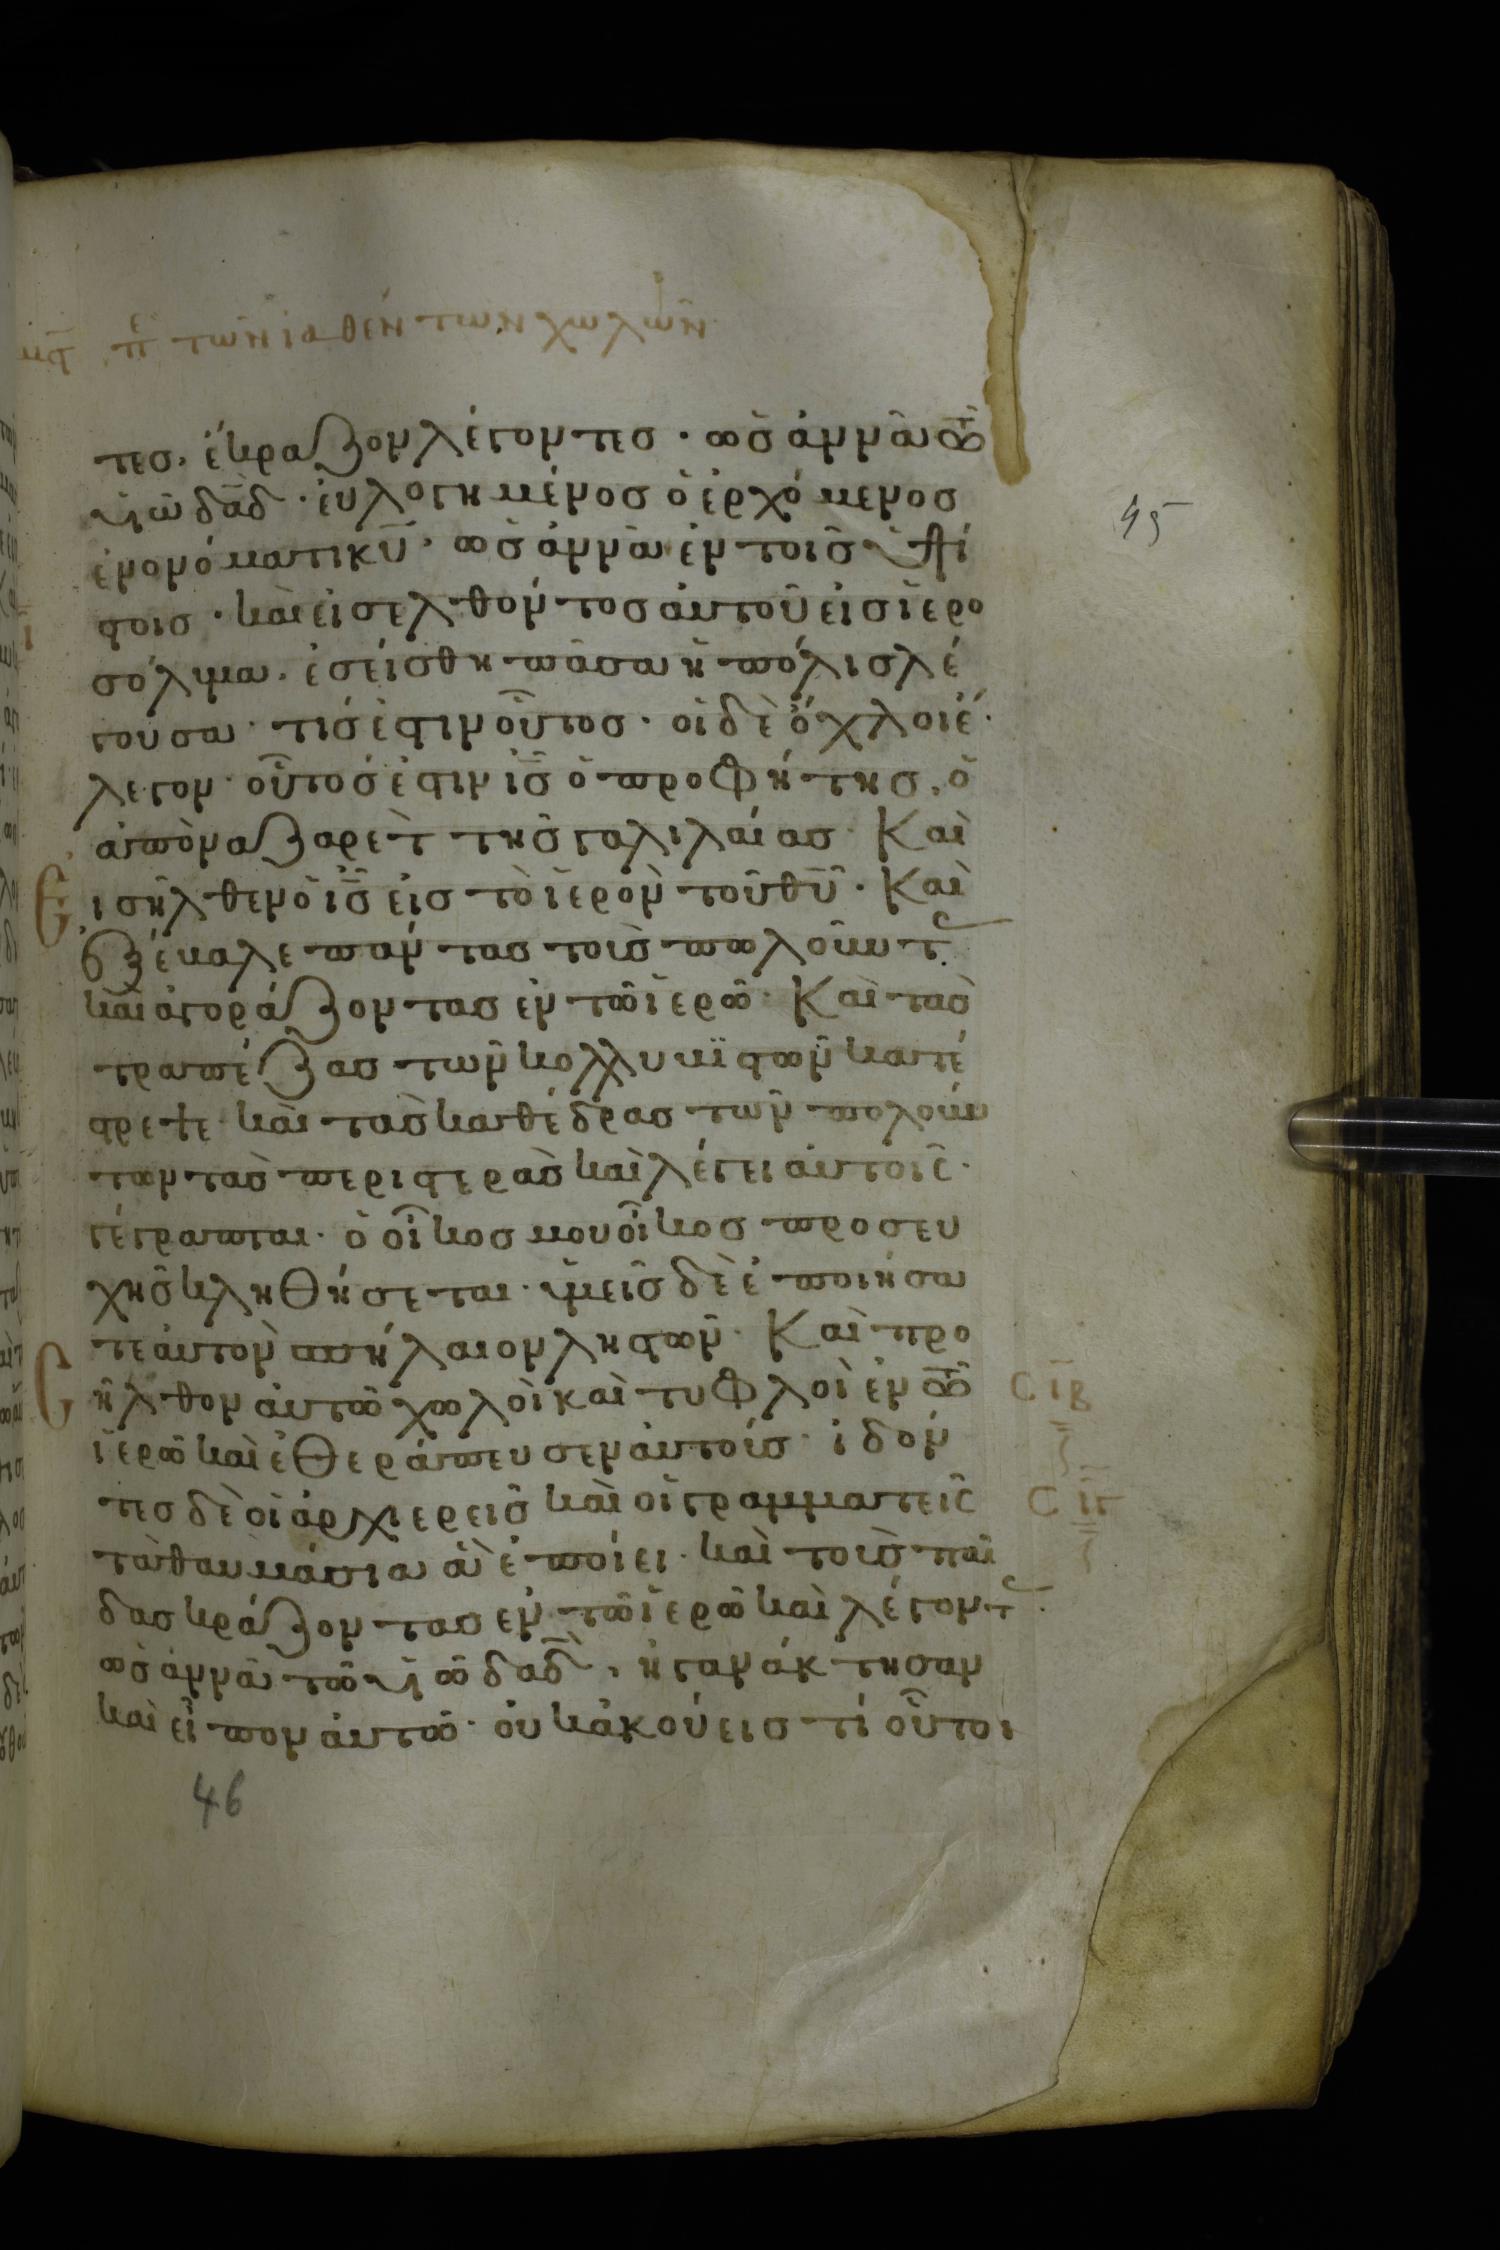 μϛ̅ πε τῶν ἰαθέντων χωλῶν
τεσ. ἔκραζον λέγοντεσ · ὡσ ἀννὰ τῶ
υἱῶ δα̅δ · ἐυλογημένοσ ὁ ἐρχόμενοσ
ἐν ὀνόματι κυ̅ · ὡσ ἀννὰ ἐν τοῖσ ὑψί
στοισ · καὶ εἰσελθόντοσ αὐτοῦ εἰσ ἱερο
σόλυμα. ἐσείσθη πᾶσα ἡ πόλισ λέ
γουσα · τίσ ἐστιν οὗτοσ · οἱ δὲ ὄχλοι ἔ
λεγον · οὗτόσ ἐστιν ισ̅ ὁ προφήτησ, ὁ
ἀπὸ ναζαρὲτ τῆσ γαλιλαίασ · Καὶ
Ε ισῆλθεν ὁ ισ̅ εἰσ τὸ ἱερὸν τοῦ θυ̅ · Καὶ
ἐξέβαλε πάντασ τοὺσ πωλοῦντ
καὶ ἀγοράζοντασ ἐν τῶ ἱερῶ · Καὶ τὰσ
τραπέζασ τῶν κολλυβϊστῶν κατέ
στρεψε καὶ τὰσ καθέδρασ τῶν πολούν
των τὰσ περιστερὰσ καὶ λέγει αὐτοῖσ ·
γέγραπται · ὁ οἶκοσ μου οἶκοσ προσευ
χῆσ κληθήσεται · ὑμεῖσ δὲ ἐποιήσα
τε αὐτὸν σπήλαιον ληστῶν · Καὶ προ
C ῆλθον αὐτῶ χωλοὶ και τυφλοὶ ἐν τῶ
C ι̅β
ἱερῶ καὶ ἐθεράπευσεν αὐτούσ · ἰδόν
τεσ δὲ οἱ ἀρχιερεῖσ καὶ οἱ γραμματεῖσ
C ι̅γ
τὰ θαυμάσια ἃ ἐποίει · καὶ τοὺσ παῖ
δασ κράζοντασ ἐν τῶ ἱερῶ καὶ λέγοντ
ὡσ ἀννὰ τῶ υἱῶ δα̅δ, ἠγανάκτησαν
καὶ εἶπον αὐτῶ · οὐκ ἀκούεισ τί οὗτοι
45
46